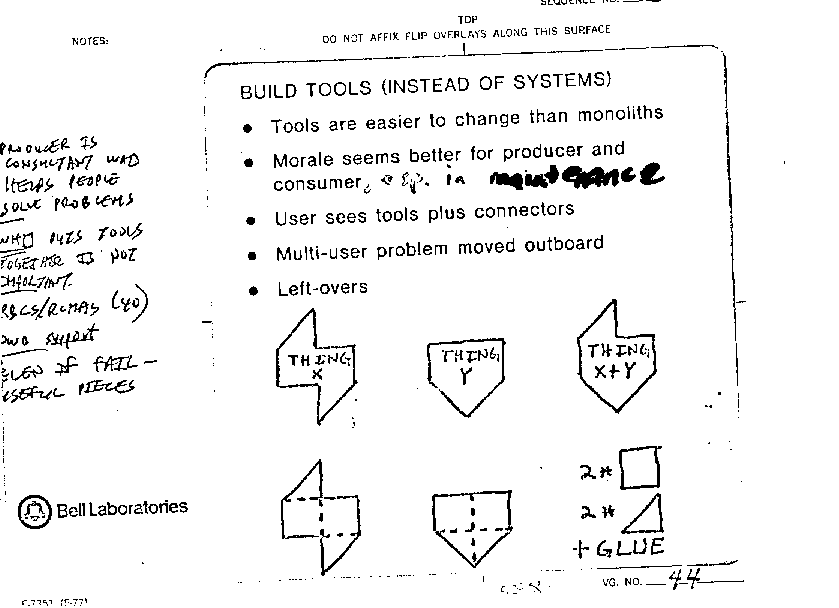 SEQUENCE NO.
TOP
DO NOT AFFIX FLIP OVERLAYS ALONG THIS SURFACE
NOTES:
BUILD TOOLS (INSTEAD OF SYSTEMS)
• Tools are easier to change than monoliths
• Morale seems better for producer and
consumer, esp. in maintenance
• User sees tools plus connectors
• Multi-user problem moved outboard
• Left-overs
PRODUCER IS
CONSULTANT WHO
HELPS PEOPLE
SOLVE PROBLEMS
WHO PUTS TOOLS
TOGETHER IS NOT
IMPORTANT.
RBCS/RCMAS (40)
EVEN IF FAIL —
USEFUL PIECES
THING
X
THING
Y
THING
X+Y
2*
2*
+ GLUE
Bell Laboratories
VG. NO. 44